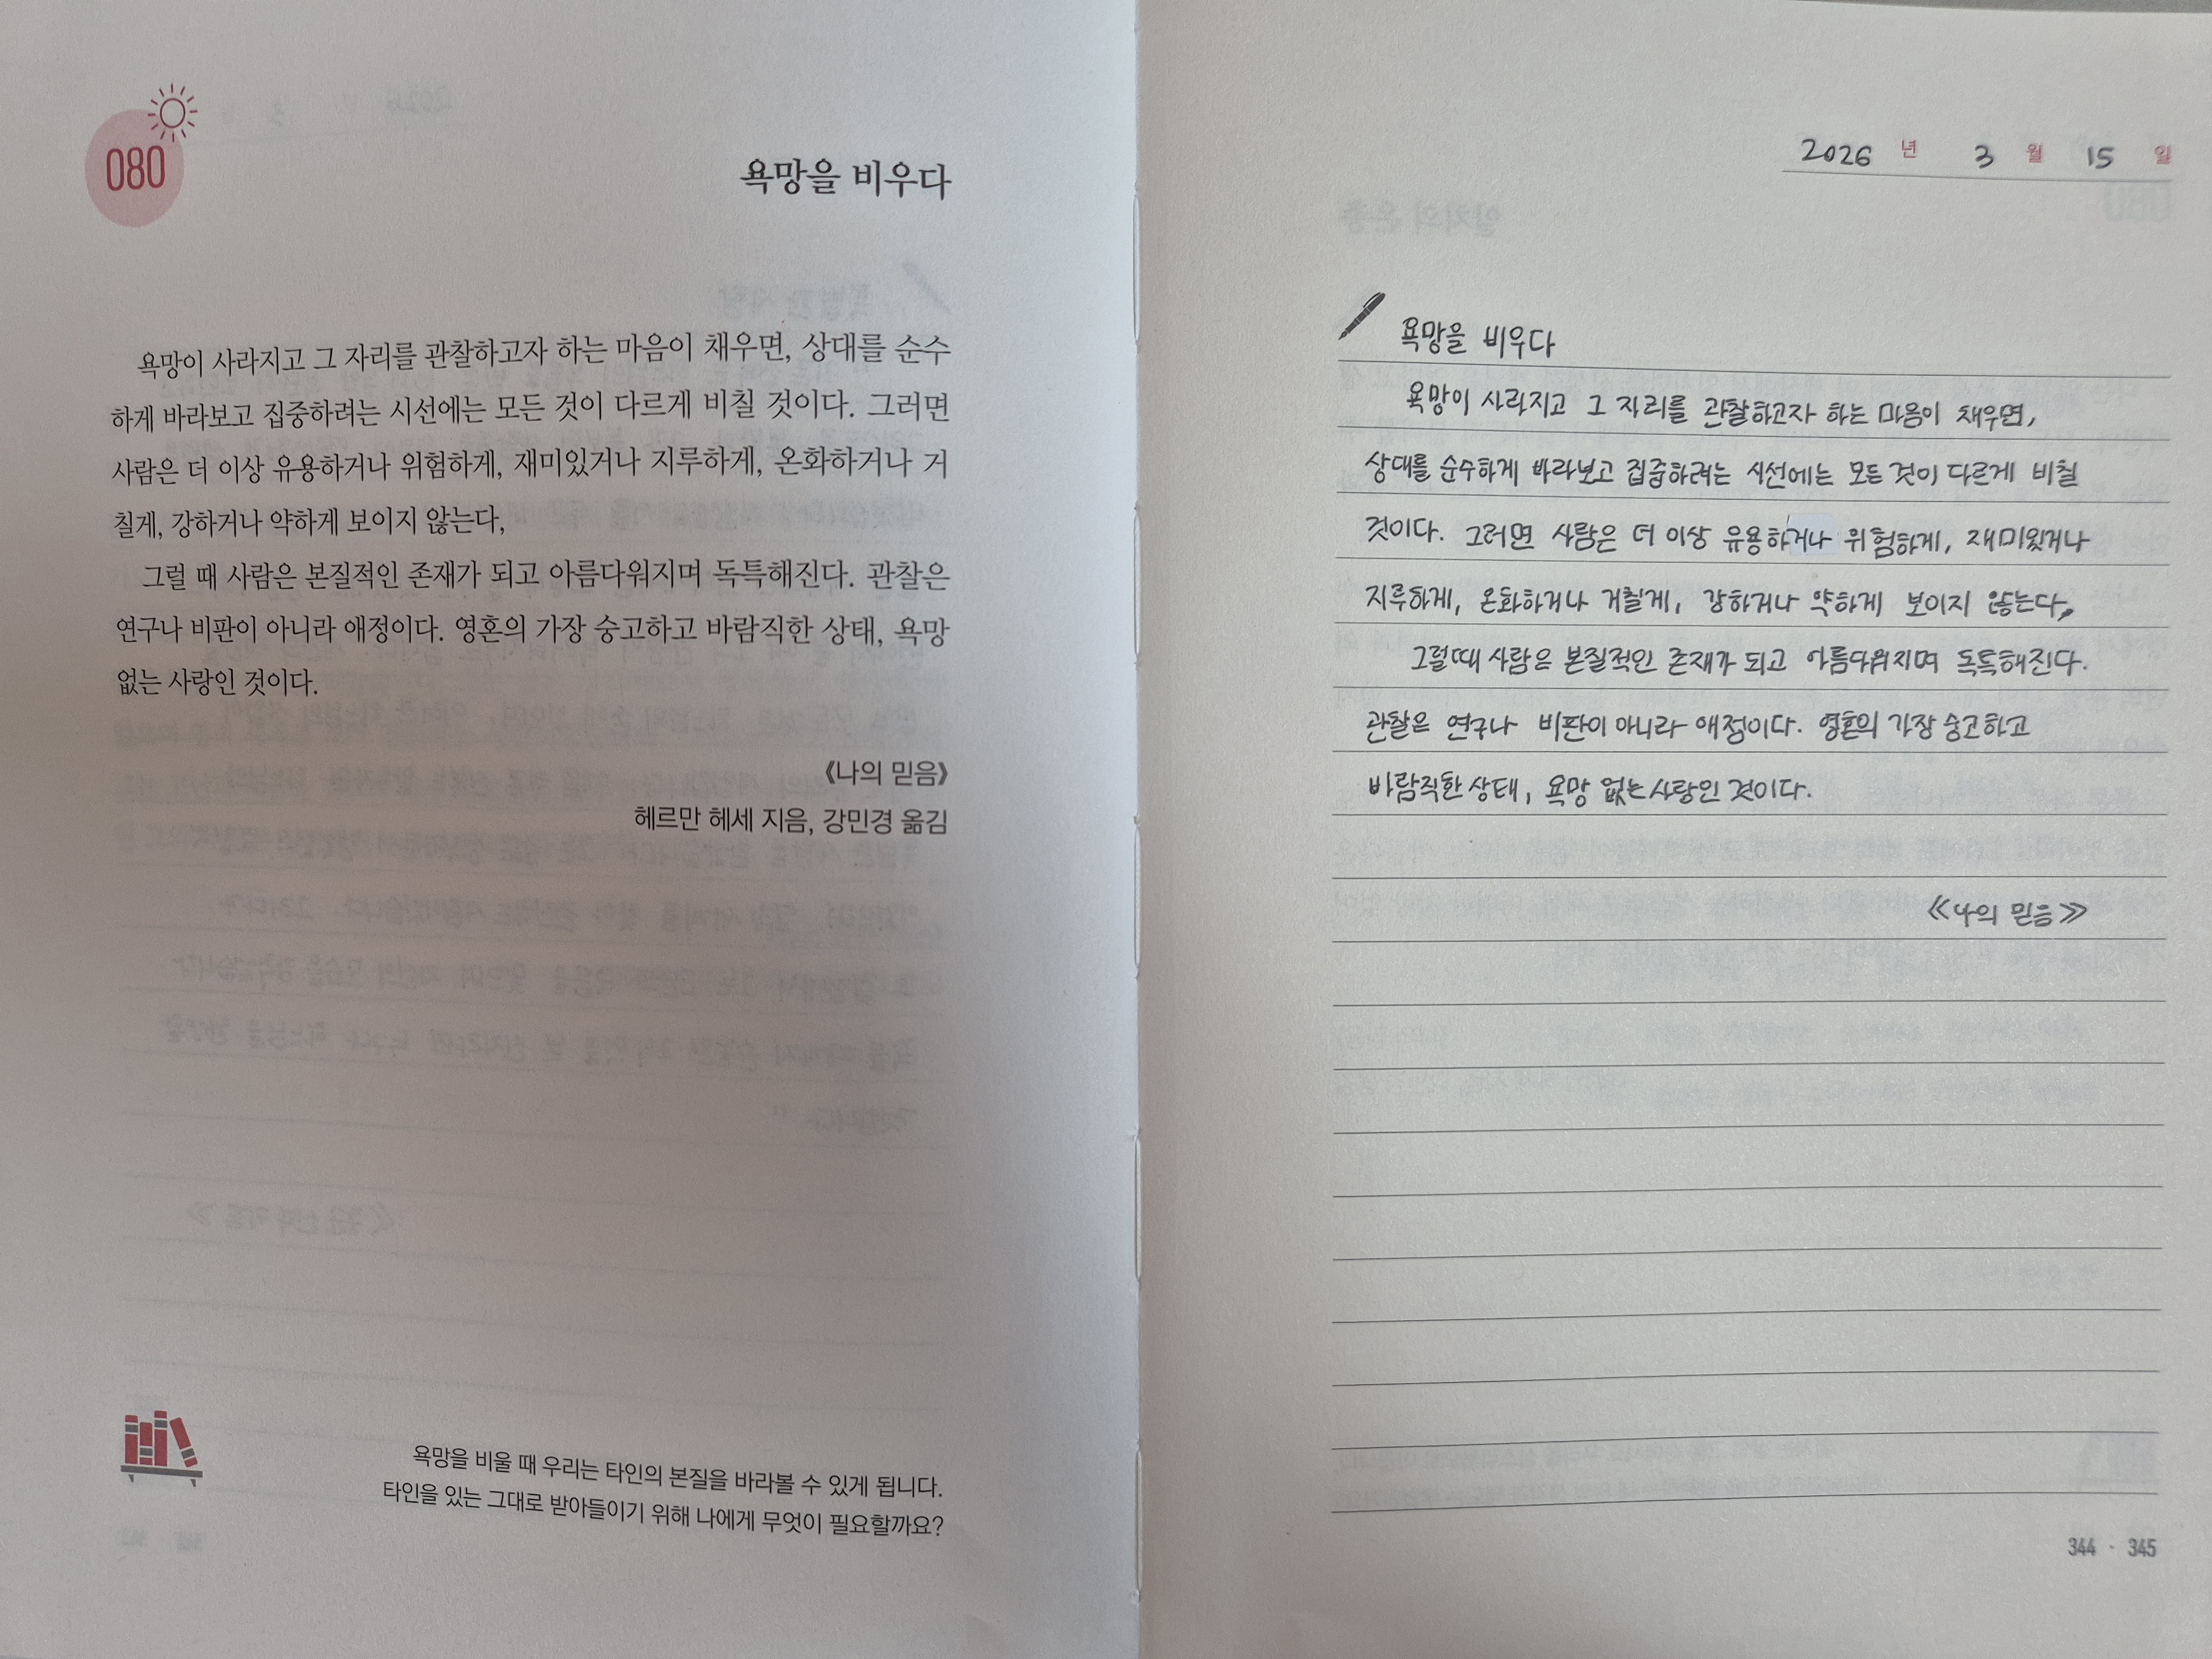 080
욕망을 비우다
욕망이 사라지고 그 자리를 관찰하고자 하는 마음이 채우면, 상대를 순수
하게 바라보고 집중하려는 시선에는 모든 것이 다르게 비칠 것이다. 그러면
사람은 더 이상 유용하거나 위험하게, 재미있거나 지루하게, 온화하거나 거
칠게, 강하거나 약하게 보이지 않는다,
그럴 때 사람은 본질적인 존재가 되고 아름다워지며 독특해진다. 관찰은
연구나 비판이 아니라 애정이다. 영혼의 가장 숭고하고 바람직한 상태, 욕망
없는 사랑인 것이다.
《나의 믿음》
헤르만 헤세 지음, 강민경 옮김
욕망을 비울 때 우리는 타인의 본질을 바라볼 수 있게 됩니다.
타인을 있는 그대로 받아들이기 위해 나에게 무엇이 필요할까요?
2026 년 3 월 15 일
욕망을 비우다
욕망이 사라지고 그 자리를 관찰하고자 하는 마음이 채우면,
상대를 순수하게 바라보고 집중하려는 시선에는 모든 것이 다르게 비칠
것이다. 그러면 사람은 더 이상 유용하거나 위험하게, 재미있거나
지루하게, 온화하거나 거칠게, 강하거나 약하게 보이지 않는다,
그럴때 사람은 본질적인 존재가 되고 아름다워지며 독특해진다.
관찰은 연구나 비판이 아니라 애정이다. 영혼의 가장 숭고하고
바람직한 상태, 욕망 없는 사랑인 것이다.
《나의 믿음》
344 · 345